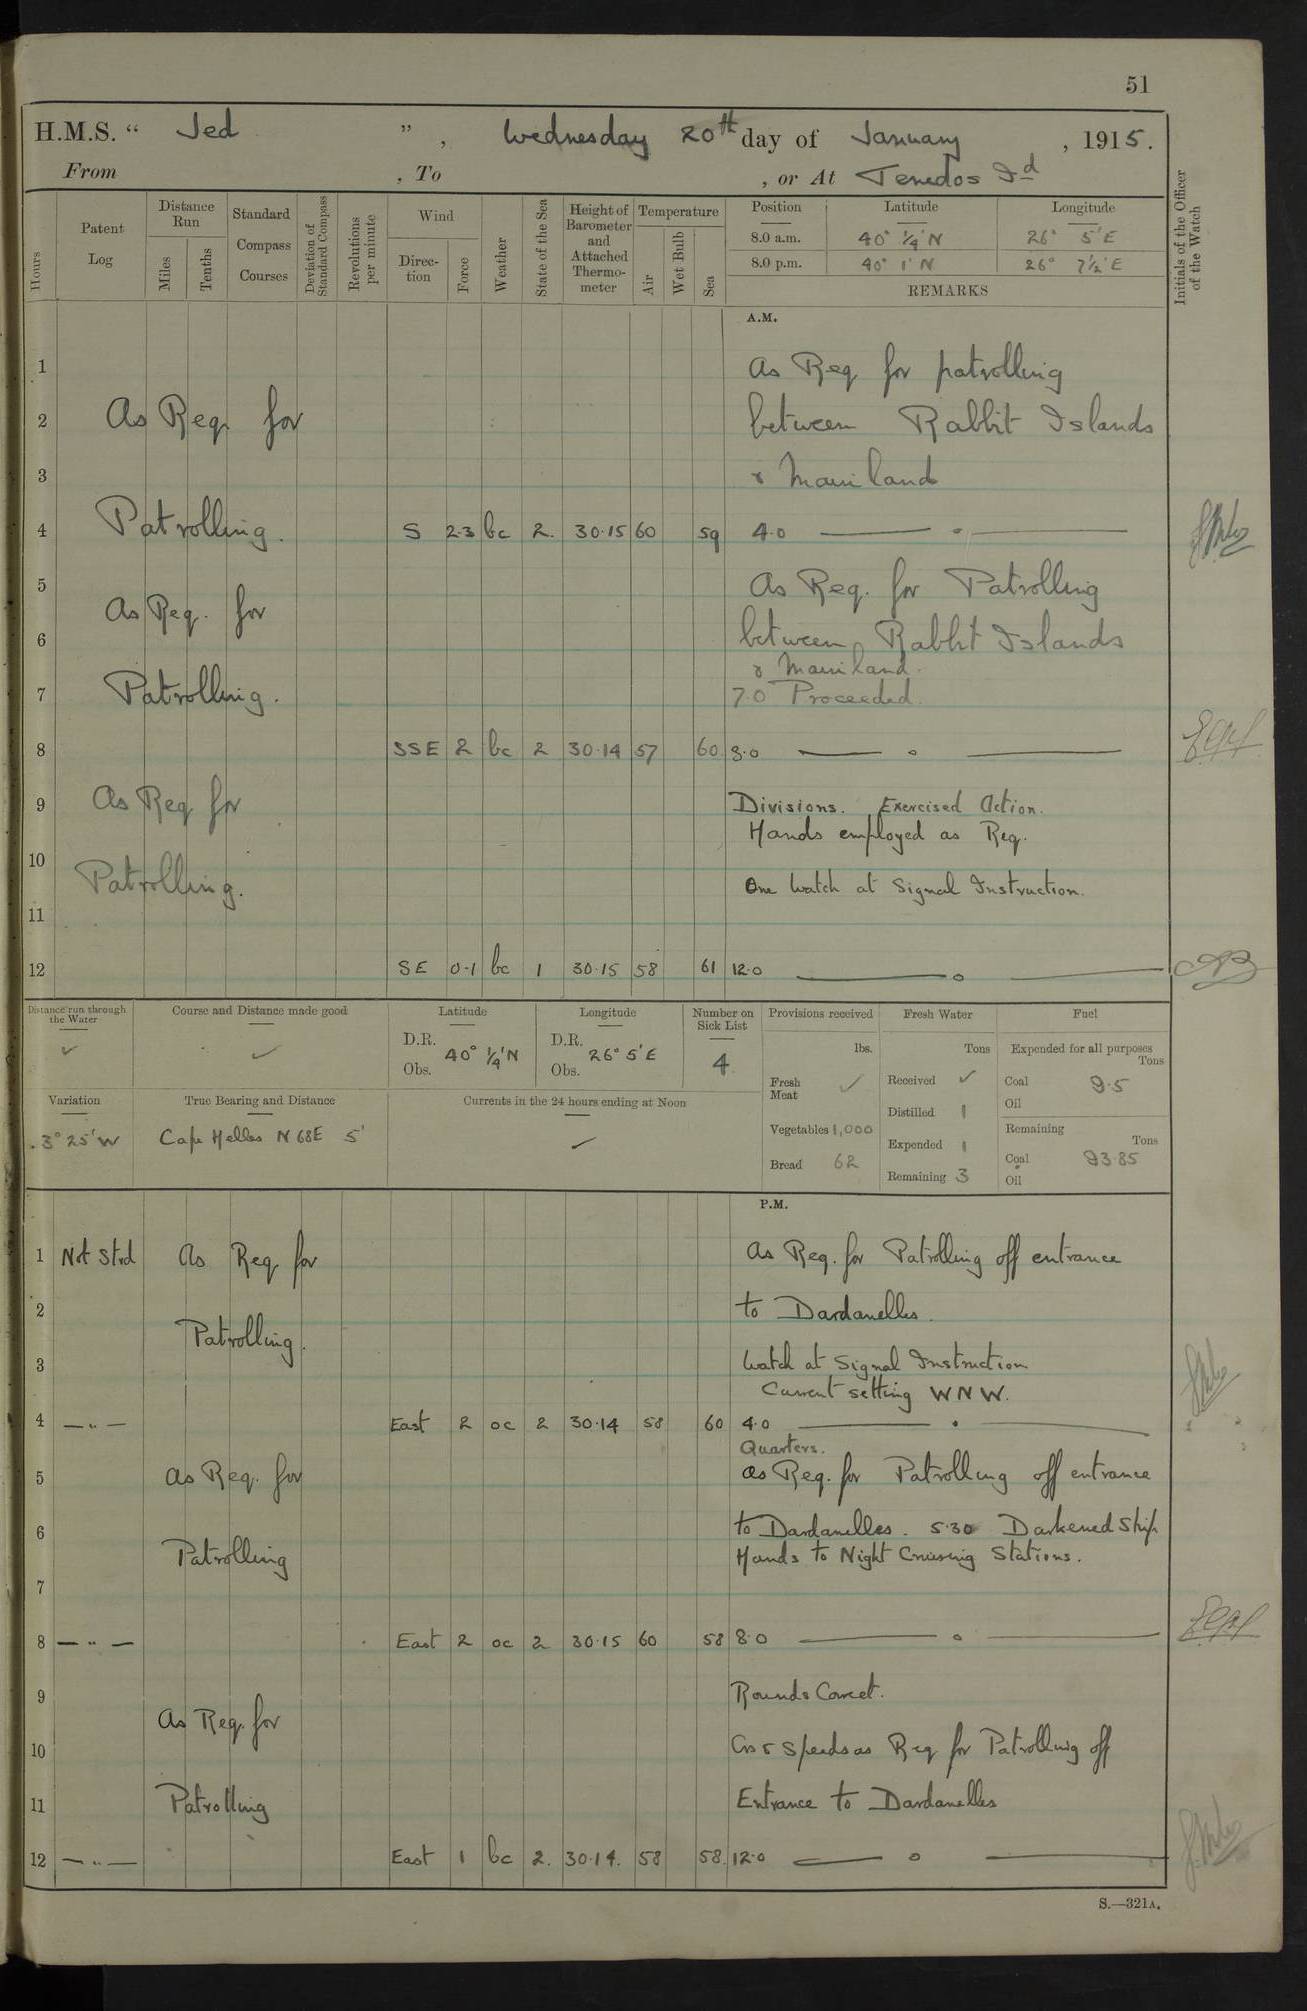 51
H.M.S. " Jed " , Wednesday 20th day of January , 1915.
From , To , or At Tenedos Id
Hours
Patent Log
Distance Run
Miles
Tenths
Standard Compass Courses
Deviation of Standard Compass
Revolutions per minute
Wind
Direction
Force
Weather
State of the Sea
Height of Barometer and Attached Thermometer
Temperature
Air
Wet Bulb
Sea
Position Latitude Longitude
8.0 a.m. 40° ¼' N 26° 5' E
8.0 p.m. 40° 1' N 26° 7½' E
REMARKS
Initials of the Officer of the Watch
A.M.
1 As Req for patrolling
2 As Req for between Rabbit Islands
3 & Mainland
4 Patrolling. S 2.3 bc 2. 30.15 60 59 4.0
5 As Req. for Patrolling
As Req. for
6 between Rabbit Islands
& Mainland.
7 Patrolling. 7.0 Proceeded.
8 SSE 2 bc 2 30.14 57 60 8.0
9 As Req for Divisions. Exercised Action.
Hands employed as Req.
10 Patrolling. One Watch at Signal Instruction.
11
12 SE 0-1 bc 1 30.15 58 61 12.0
Distance run through the Water
Course and Distance made good
Latitude
D.R. 40° ¼' N
Obs.
Longitude
D.R. 26° 5' E
Obs.
Number on Sick List
4
Provisions received
lbs.
Fresh Meat
Vegetables 1,000
Bread 62
Fresh Water
Tons
Received
Distilled 1
Expended 1
Remaining 3
Fuel
Expended for all purposes
Tons
Coal 9.5
Oil
Remaining
Tons
Coal 93.85
Oil
Variation
3° 25' W
True Bearing and Distance
Cape Helles N 68E 5'
Currents in the 24 hours ending at Noon
P.M.
1 Not Strd As Req for As Req. for Patrolling off entrance
2 to Dardanelles.
Patrolling.
3 Watch at Signal Instruction
Current setting WNW.
4 — " — East 2 oc 2 30.14 58 60 4.0
Quarters.
5 As Req. for As Req. for Patrolling off entrance
6 to Dardanelles. 5.30 Darkened Ship
Patrolling Hands to Night Cruising Stations.
7
8 — " — East 2 oc 2 30.15 60 58 8.0
9 Rounds Correct.
As Req. for
10 Cos & Speeds as Req for Patrolling off
11 Patrolling Entrance to Dardanelles
12 — " — East 1 bc 2. 30.14. 58 58 12.0
S.—321A.